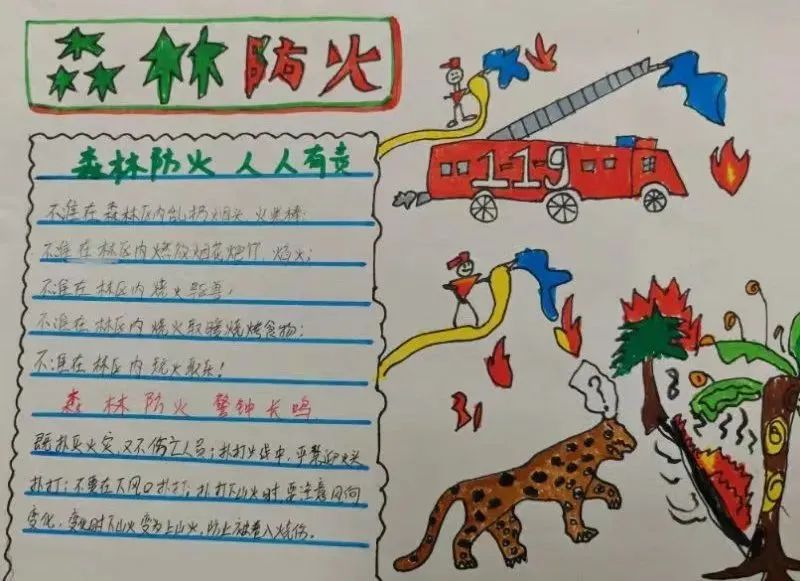 森林防火
森林防火 人人有责
不准在森林区内乱扔烟头、火柴棒;
不准在林区内燃放烟花爆竹、焰火;
不准在林区内烧火驱兽;
不准在林区内烧火取暖烧烤食物;
不准在林区内玩火取乐!
森林防火 警钟长鸣
既扑灭火灾,又不伤亡人员;扑打火焰中,要靠近火头
扑打;不要在下风口扑打;扑打下山火时,要注意风向
变化,变化时下山火变为上山火,防止被卷入烧伤。
119
?